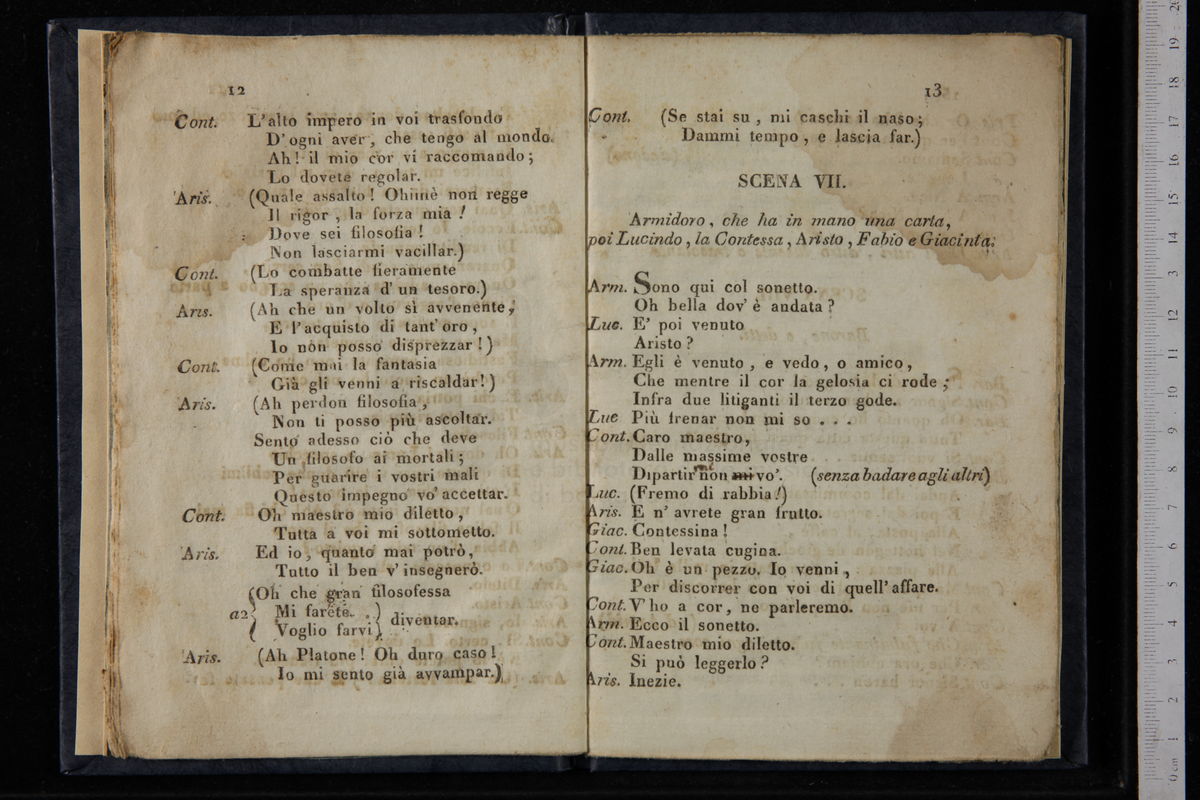 12
Cont. L'alto impero in voi trasfondo
D'ogni aver, che tengo al mondo.
Ah! il mio cor vi raccomando;
Lo dovete regolar.
Aris. (Quale assalto! Ohimè non regge
Il rigor, la forza mia!
Dove sei filosofia!
Non lasciarmi vacillar.)
Cont. (Lo combatte fieramente
La speranza d'un tesoro.)
Aris. (Ah che un volto sì avvenente,
E l'acquisto di tant'oro,
Io non posso disprezzar!)
Cont. (Come mai la fantasia
Già gli venni a riscaldar!)
Aris. (Ah perdon filosofia,
Non ti posso più ascoltar.
Sento adesso ciò che deve
Un filosofo ai mortali;
Per guarire i vostri mali
Questo impegno vo' accettar.
Cont. Oh maestro mio diletto,
Tutta a voi mi sottometto.
Aris. Ed io, quanto mai potrò,
Tutto il ben v'insegnerò.
(Oh che gran filosofessa
a2) Mi farete. ) diventar.
( Voglio farvi)
Aris. (Ah Platone! Oh duro caso!
Io mi sento già avvampar.)
13
Cont. (Se stai su, mi caschi il naso;
Dammi tempo, e lascia far.)
SCENA VII.
Armidoro, che ha in mano una carta,
poi Lucindo, la Contessa, Aristo, Fabio e Giacinta.
Arm. Sono qui col sonetto.
Oh bella dov'è andata?
Luc. E' poi venuto
Aristo?
Arm. Egli è venuto, e vedo, o amico,
Che mentre il cor la gelosia ci rode;
Infra due litiganti il terzo gode.
Luc Più frenar non mi so . . .
Cont. Caro maestro,
Dalle massime vostre
Dipartir non mi vo'. (senza badare agli altri)
Luc. (Fremo di rabbia!)
Aris. E n'avrete gran frutto.
Giac. Contessina!
Cont. Ben levata cugina.
Giac. Oh è un pezzo. Io venni,
Per discorrer con voi di quell'affare.
Cont. V'ho a cor, ne parleremo.
Arm. Ecco il sonetto.
Cont. Maestro mio diletto.
Si può leggerlo?
Aris. Inezie.